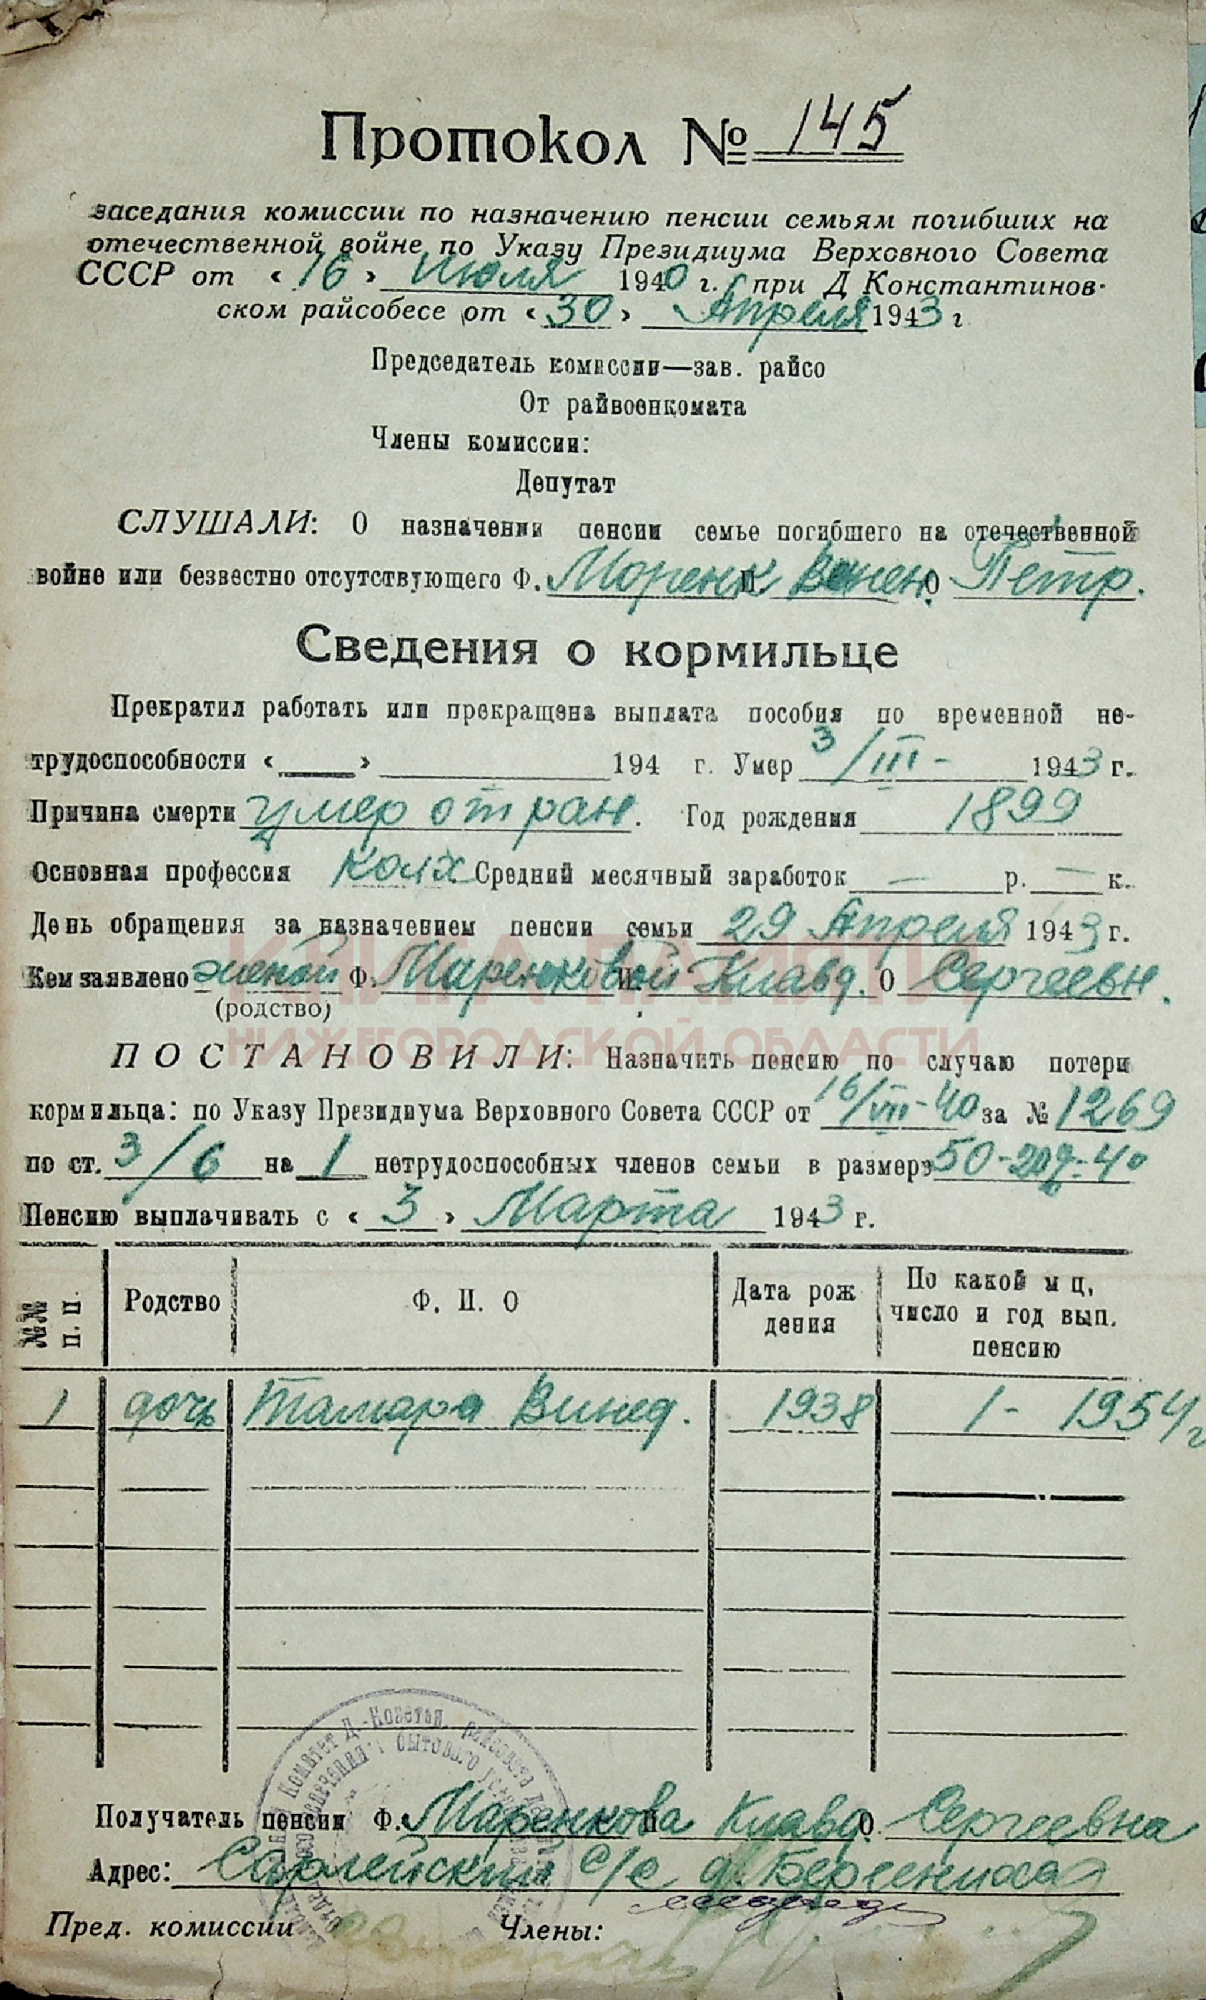 Протокол № 145
заседания комиссии по назначению пенсии семьям погибших на
отечественной войне по Указу Президиума Верховного Совета
СССР от «16» Июля 1940 г. при Д Константинов-
ском райсобесе от «30» Апреля 1943 г
Председатель комиссии—зав. райсо
От райвоенкомата
Члены комиссии:
Депутат
СЛУШАЛИ: О назначении пенсии семье погибшего на отечественной
войне или безвестно отсутствующего Ф. Моренк И. Венен. О Петр.
Сведения о кормильце
Прекратил работать или прекращена выплата пособия по временной не-
трудоспособности « » 194 г. Умер 3/III - 1943 г.
Причина смерти умер от ран. Год рождения 1899
Основная профессия Колх Средний месячный заработок — р. — к.
День обращения за назначением пенсии семьи 29 Апреля 1943 г.
Кем заявлено женой Ф. Маренковой И. Клавд. О Сергеевн.
(родство)
КНИГА ПАМЯТИ
НИЖЕГОРОДСКОЙ ОБЛАСТИ
ПОСТАНОВИЛИ: Назначить пенсию по случаю потери
кормильца: по Указу Президиума Верховного Совета СССР от 16/VII-40 за № 1269
по ст. 3/6 на 1 нетрудоспособных членов семьи в размере 50-
Пенсию выплачивать с «3» Марта 1943 г.
№№ п. п. Родство Ф. И. О Дата рож дения По какой м ц, число и год вып. пенсию
1 дочь Тамара Винед. 1938 1- 1954 г
Получатель пенсии Ф. Маренкова И Клавд О. Сергеевна
Адрес: Сарлейский с/с д. Берсениха
Пред. комиссии Члены: